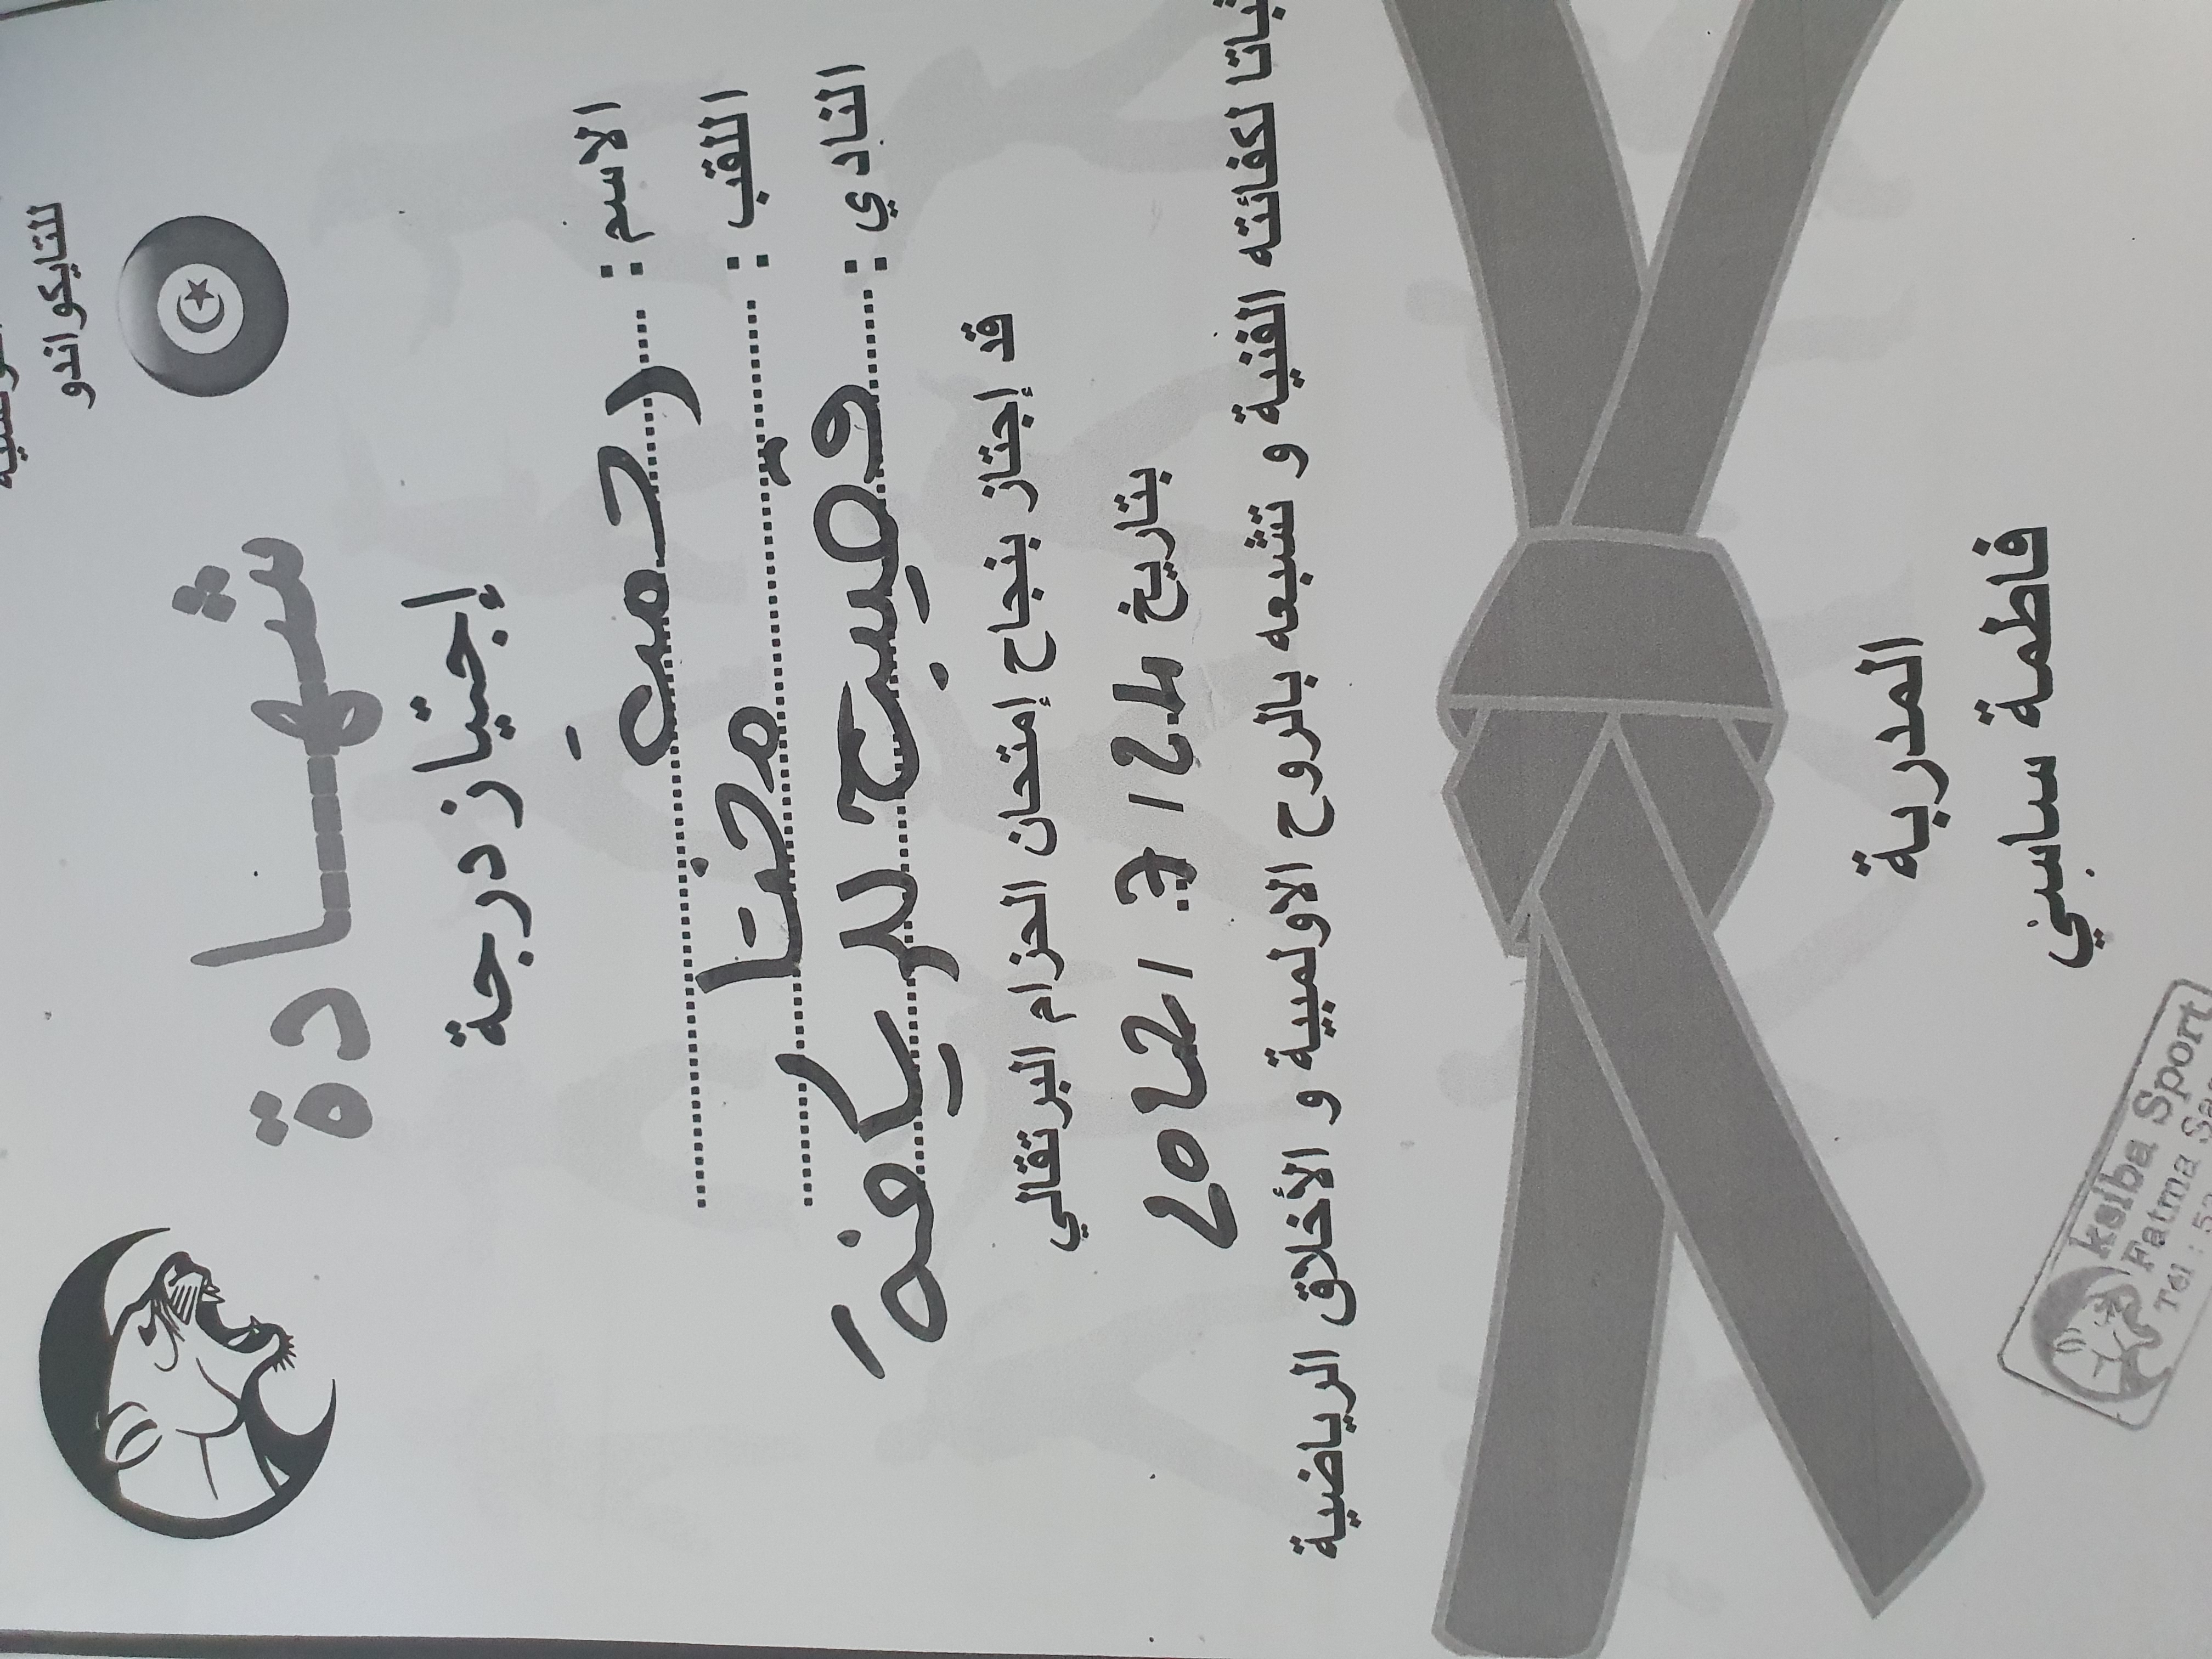 للتايكواندو
شهادة
إجتياز درجة
الاسم : رحمة
اللقب : محتا
النادي : قصيبح للرياضة
قد إجتاز بنجاح إمتحان الحزام البرتقالي
بتاريخ 24 / 7 / 2021
لكفائته الفنية و تشبعه بالروح الاولمبية و الأخلاق الرياضية
المدربة
فاطمة ساسي
ksiba Sport
Fatma
Tel : 5